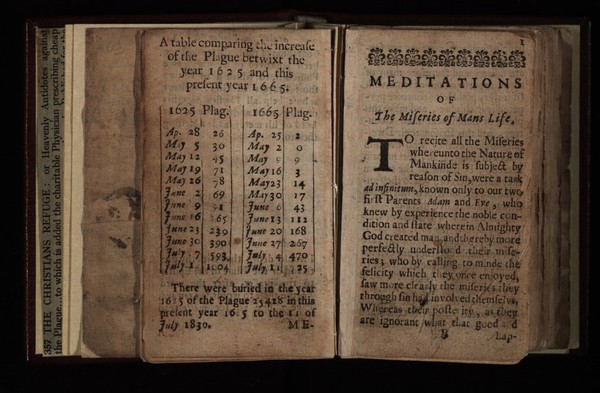 357 THE CHRISTIANS REFUGE: or Heavenly Antidotes against
the Plague...to which is added the charitable Physician prescribing cheap
A table comparing the increaſe
of the Plague betwixt the
year 1625 and this
preſent year 1665.
1625 Plag. 1665 Plag.
Ap. 28 26 Ap. 25 2
May 5 30 May 2 0
May 12 45 May 9 9
May 19 71 May 16 3
May 26 78 May 23 14
June 2 69 May 30 17
June 9 91 June 6 43
June 16 165 June 13 112
June 23 239 June 20 168
June 30 390 June 27 267
July 7 593 July 4 470
July July 11
There were buried in the year
1625 of the Plague in this
preſent year to the 11 of
July 1830. ME-
1
MEDITATIONS
OF
The Miſeries of Mans Life.
TO recite all the Miſeries
whereunto the Nature of
Mankinde is ſubject by
reaſon of Sin, were a task
ad infinitum, known only to our two
firſt Parents Adam and Eve, who
knew by experience the noble con-
dition and ſtate wherein Almighty
God created man, and thereby more
perfectly underſtood their miſe-
ries; who by calling to minde the
felicity which they once enjoyed,
ſaw more clearly the miſeries they
through ſin had involved themſelvs,
Whereas their poſterity, as they
are ignorant what that good and
B Lap-